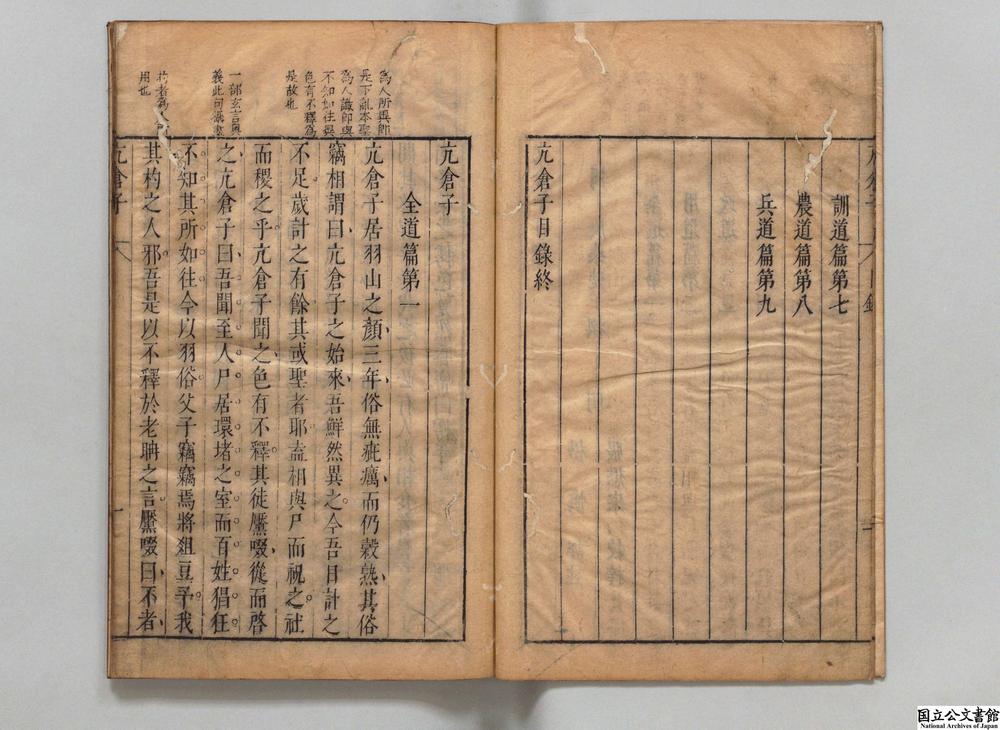 訓道篇第七
農道篇第八
兵道篇第九
亢倉子目錄終
亢倉子
全道篇第一
亢倉子居羽山之顏三年俗無疵癘而仍穀熟其俗
竊相謂曰亢倉子之始來吾鮮然異之今吾日計之
不足歲計之有餘其或聖者耶盍相與尸而祝之社
而稷之乎亢倉子聞之色有不釋其徒𪒠啜從而啓
之亢倉子曰吾聞至人尸居環堵之室而百姓猖狂
不知其所如往今以羽俗父子竊竊焉將俎豆予我
其杓之人邪吾是以不釋於老聃之言𪒠啜曰不者
為人所異即
是下亂本聖
為人識即與
不知如往異
色有不釋為
是故也
一部玄言奧
義此句攝盡
杓者為人
用也
亢倉子
一
国立公文書館
National Archives of Japan